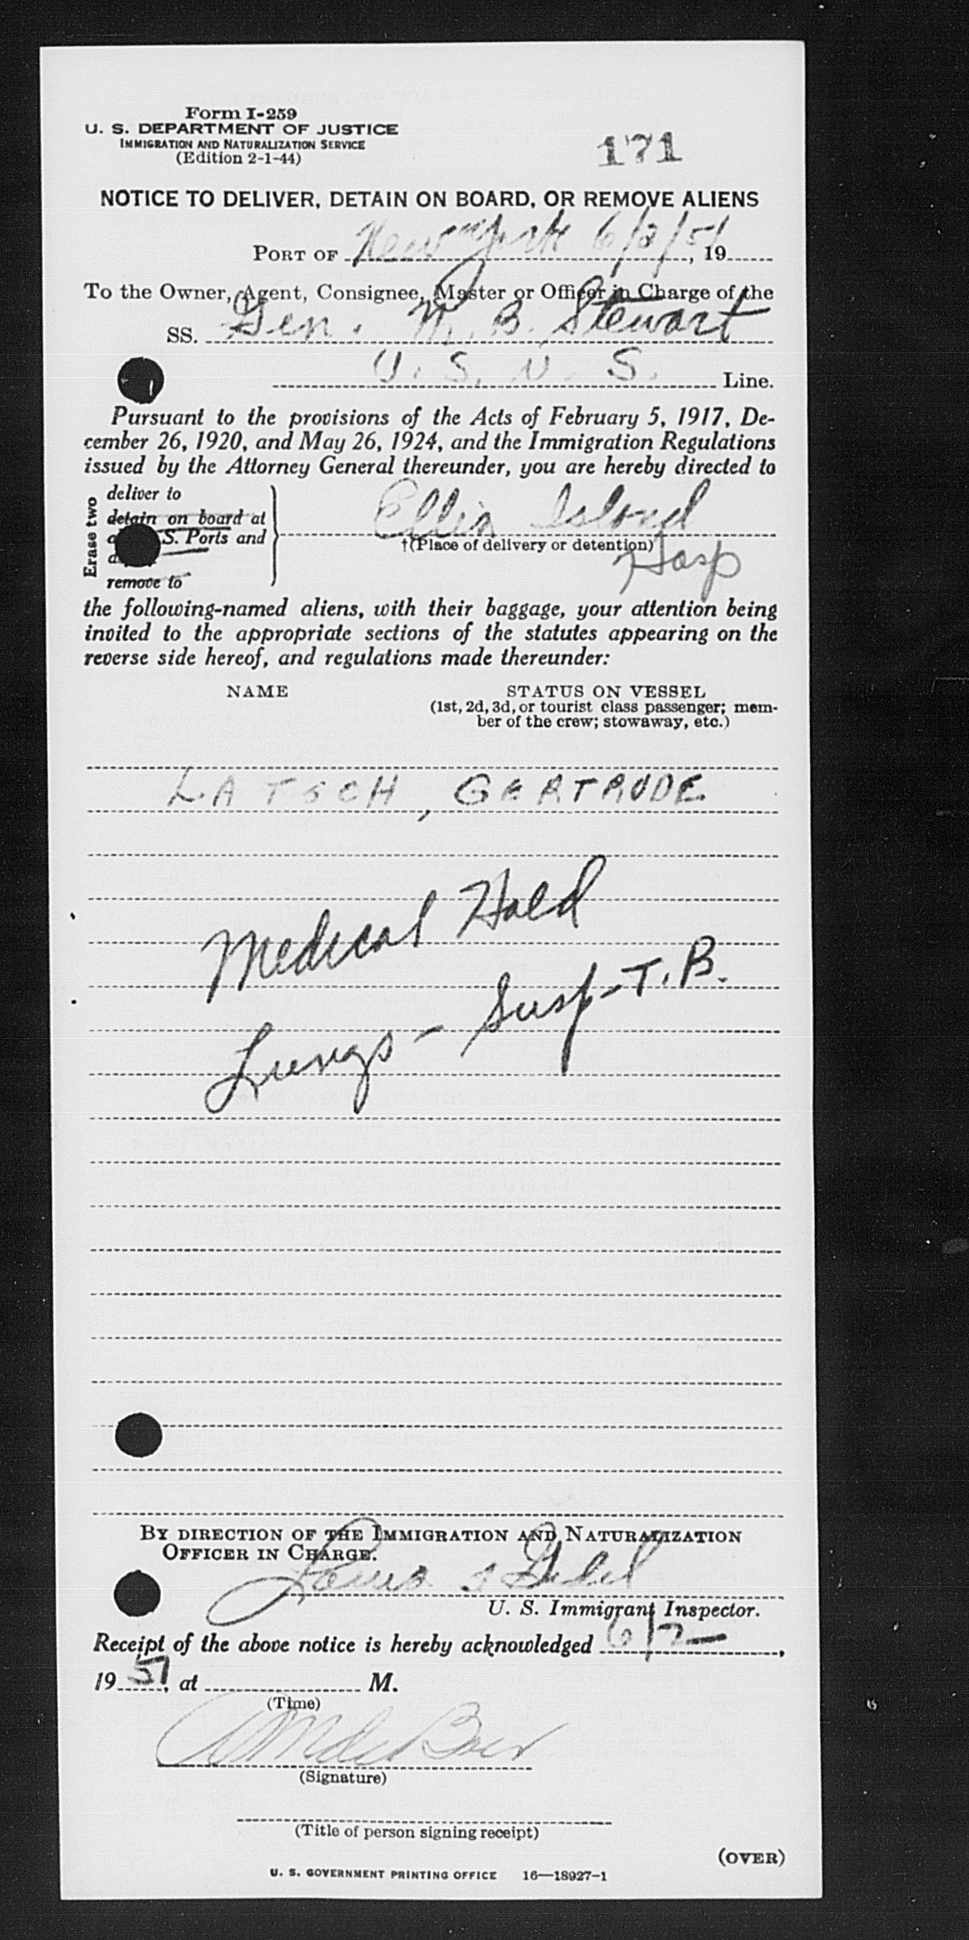 Form I-259
U. S. DEPARTMENT OF JUSTICE
IMMIGRATION AND NATURALIZATION SERVICE
(Edition 2-1-44)
171
NOTICE TO DELIVER, DETAIN ON BOARD, OR REMOVE ALIENS
PORT OF New York 6/2/51, 19
To the Owner, Agent, Consignee, Master or Officer in Charge of the
SS. Gen. M. B. Stewart
U. S. N. S. Line.
Pursuant to the provisions of the Acts of February 5, 1917, De-
cember 26, 1920, and May 26, 1924, and the Immigration Regulations
issued by the Attorney General thereunder, you are hereby directed to
Erase two
deliver to
detain on board at
S. Ports and
remove to
Ellis Island
†(Place of delivery or detention)
Hosp
the following-named aliens, with their baggage, your attention being
invited to the appropriate sections of the statutes appearing on the
reverse side hereof, and regulations made thereunder:
NAME
STATUS ON VESSEL
(1st, 2d, 3d, or tourist class passenger; mem-
ber of the crew; stowaway, etc.)
LATSCH, GERTRUDE
Medical Hold
Lungs - Susp-T.B.
BY DIRECTION OF THE IMMIGRATION AND NATURALIZATION
OFFICER IN CHARGE.
Louis
U. S. Immigrant Inspector.
Receipt of the above notice is hereby acknowledged 6/2,
1951, at M.
(Time)
(Signature)
(Title of person signing receipt)
(OVER)
U. S. GOVERNMENT PRINTING OFFICE 16—18927-1